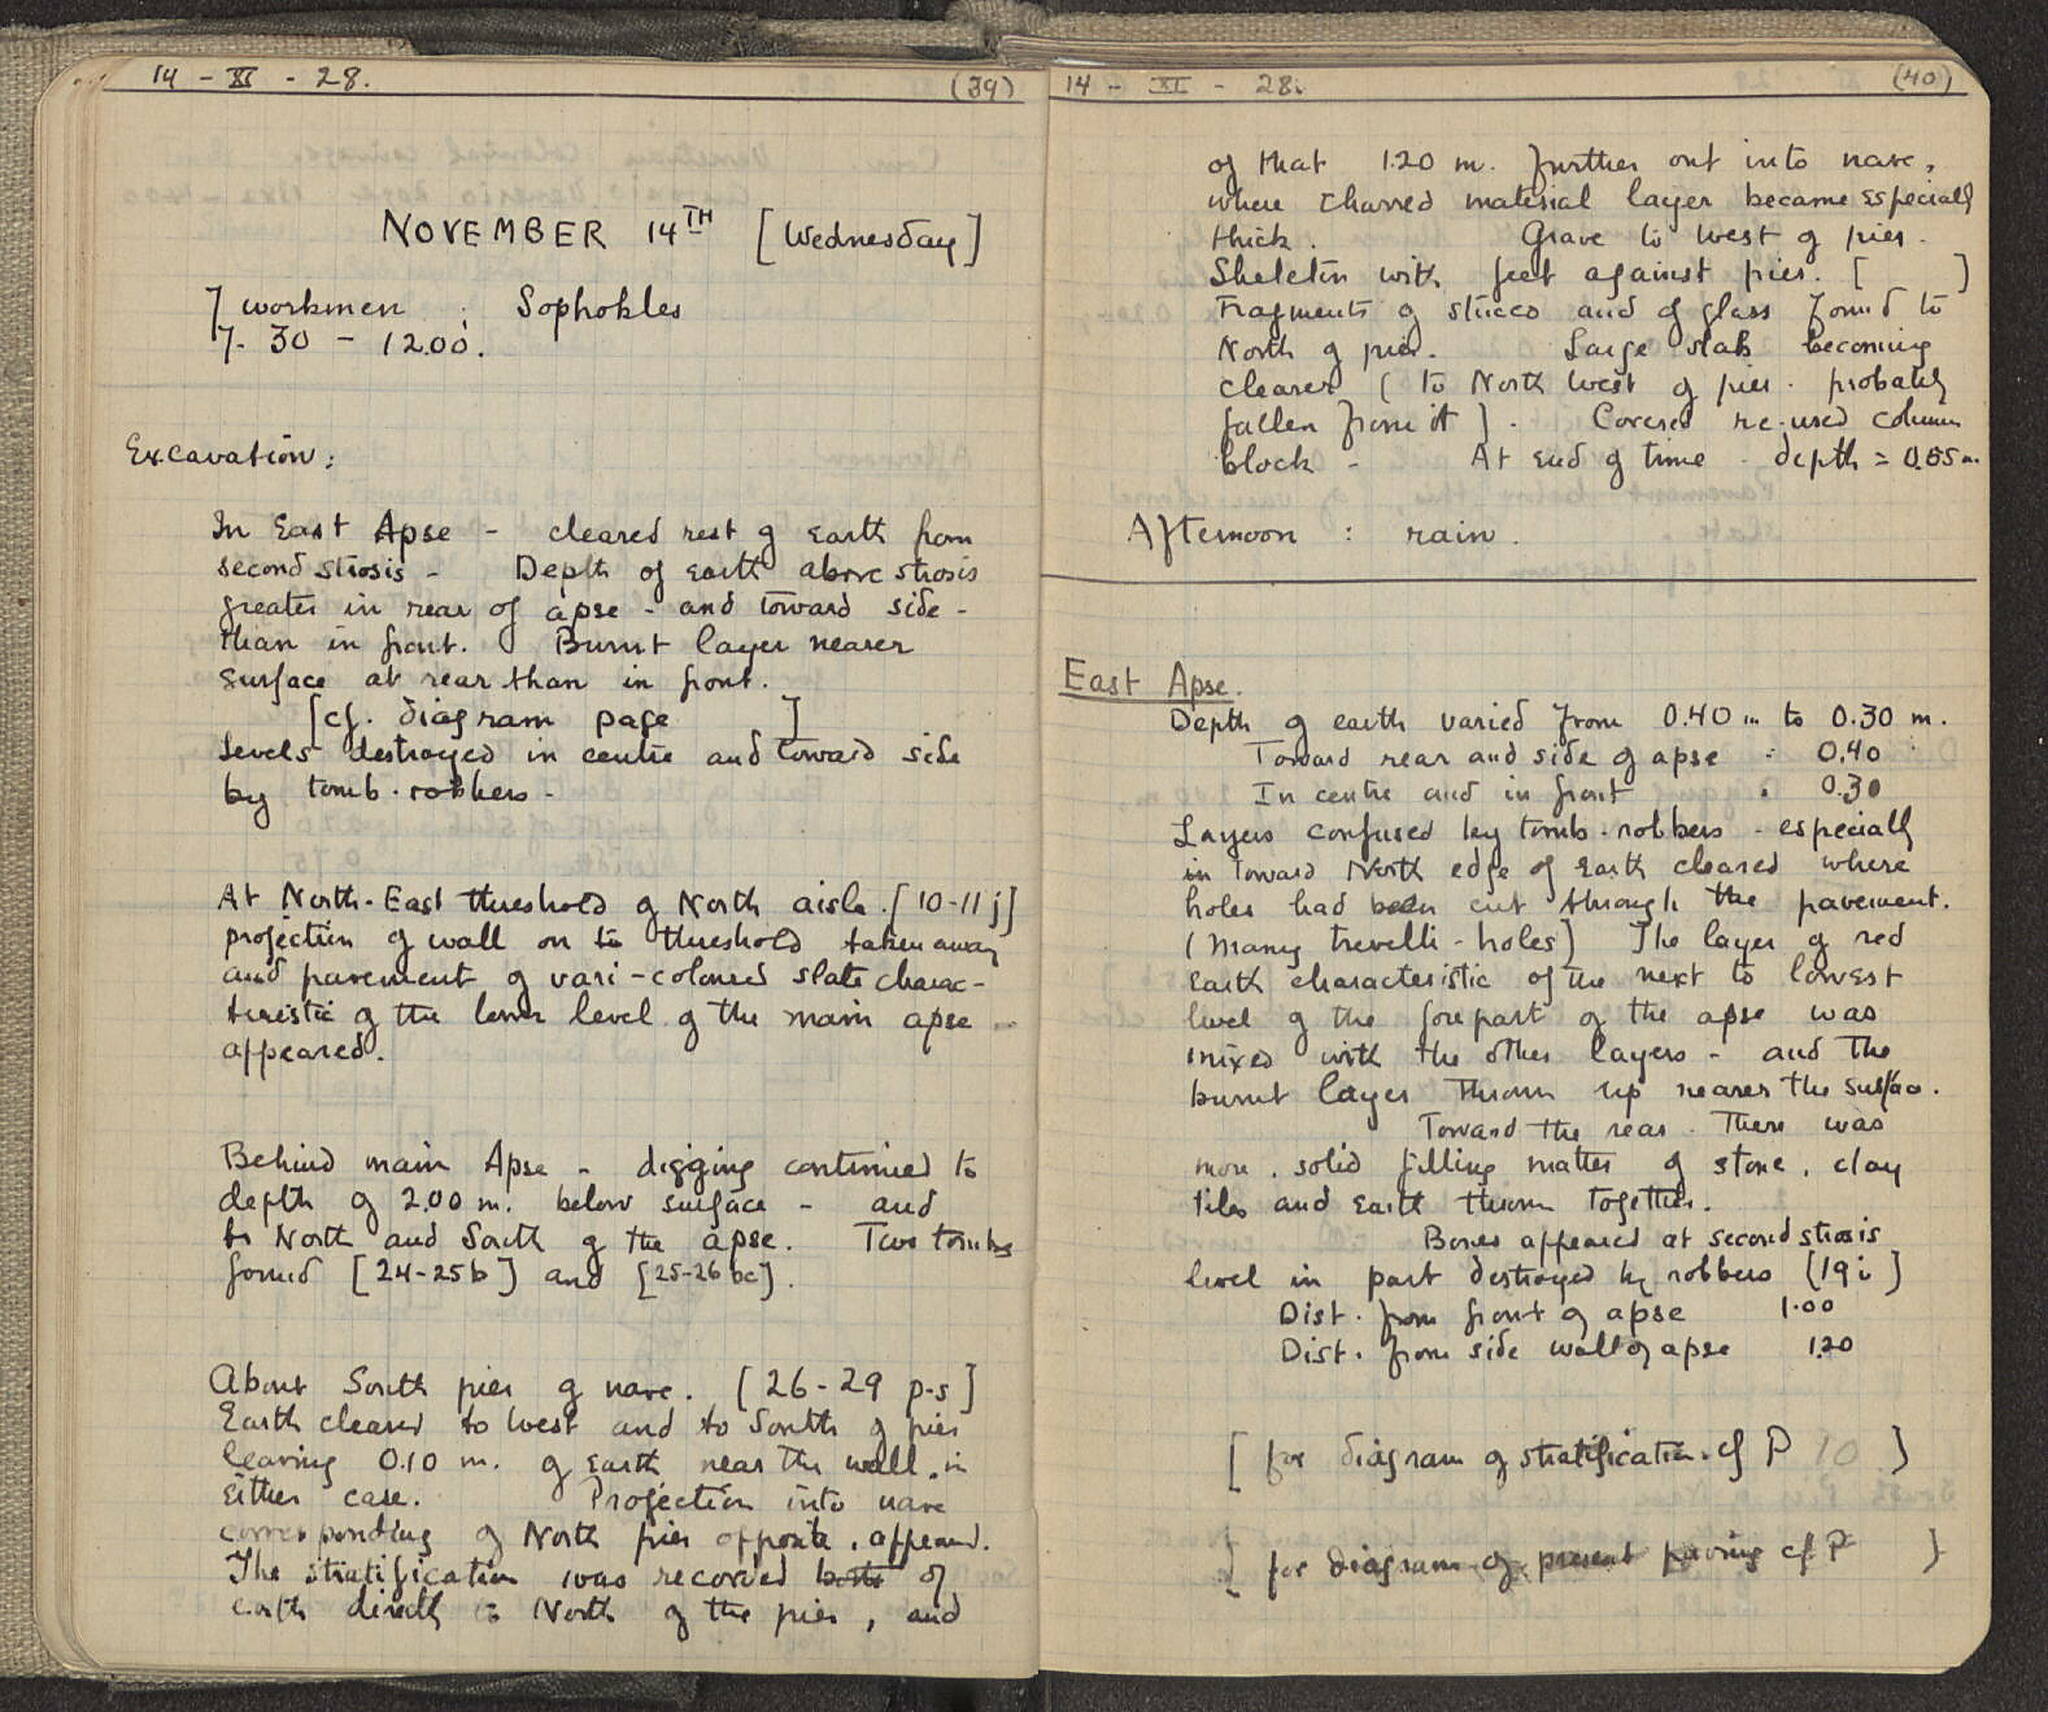 14 - XI - 28.
(39)
NOVEMBER 14TH [Wednesday]
7 workmen : Sophokles
7.30 - 12.00.
Excavation:
In East Apse - cleared rest of Earth from
second strosis - Depth of earth above strosis
greater in rear of apse - and toward side -
than in front. Burnt layer nearer
surface at rear than in front.
[cf. diagram page ]
Levels destroyed in centre and toward side
by tomb-robbers -
At North-East threshold of North aisle. [10-11 j]
projection of wall on to threshold taken away
and pavement of vari-colored slate charac-
teristic of the lower level of the main apse
appeared.
Behind main Apse - digging continued to
depth of 2.00 m. below surface - and
to North and South of the apse. Two tombs
found [24-25b] and [25-26 bc].
About South pier of nave. [26-29 p-s]
Earth cleared to West and to South of pier
leaving 0.10 m. of earth near the wall in
either case. Projection into nave
corresponding of North pier opposite, appeared.
The stratification was recorded both of
earth directly to North of the pier, and
14 - XI - 28.
(40)
of that 1.20 m. further out into nave,
where charred material layer became especially
thick. Grave to West of pier.
Skeleton with feet against pier. [ ]
Fragments of stucco and of glass found to
North of pier. Large slab becoming
clearer (to North West of pier - probably
fallen from it). Covered re-used column
block - At end of time - depth = 0.55 m.
Afternoon : rain.
East Apse.
Depth of earth varied from 0.40 m to 0.30 m.
Toward rear and side of apse : 0.40
In centre and in front : 0.30
Layers confused by tomb-robbers - especially
in toward North edge of Earth cleared where
holes had been cut through the pavement.
(Many trevelli-holes) The layer of red
earth characteristic of the next to lowest
level of the forepart of the apse was
mixed with the other layers - and the
burnt layer thrown up nearer the surface.
Toward the rear - There was
more solid filling matter of stone, clay
tiles and earth thrown together.
Bones appeared at second strosis
level in part destroyed by robbers (19 i)
Dist. from front of apse 1.00
Dist. from side wall of apse 1.20
[for diagram of stratification cf P 10 ]
[for diagram of present paving cf P ]